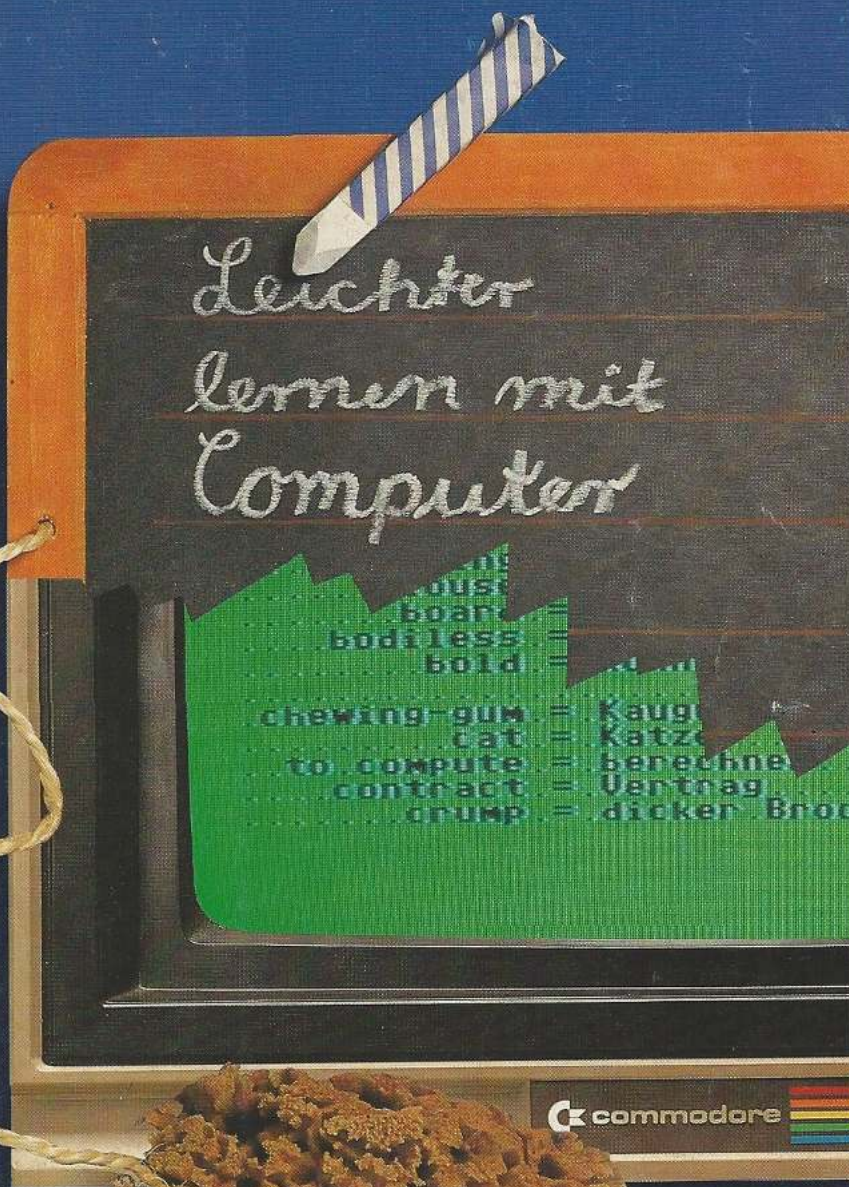 Leichter
lernen mit
Computer
bodiless =
bold =
chewing-gum =
cat =
to compute = berechne
contract = Vertrag
crump = dicker
commodore